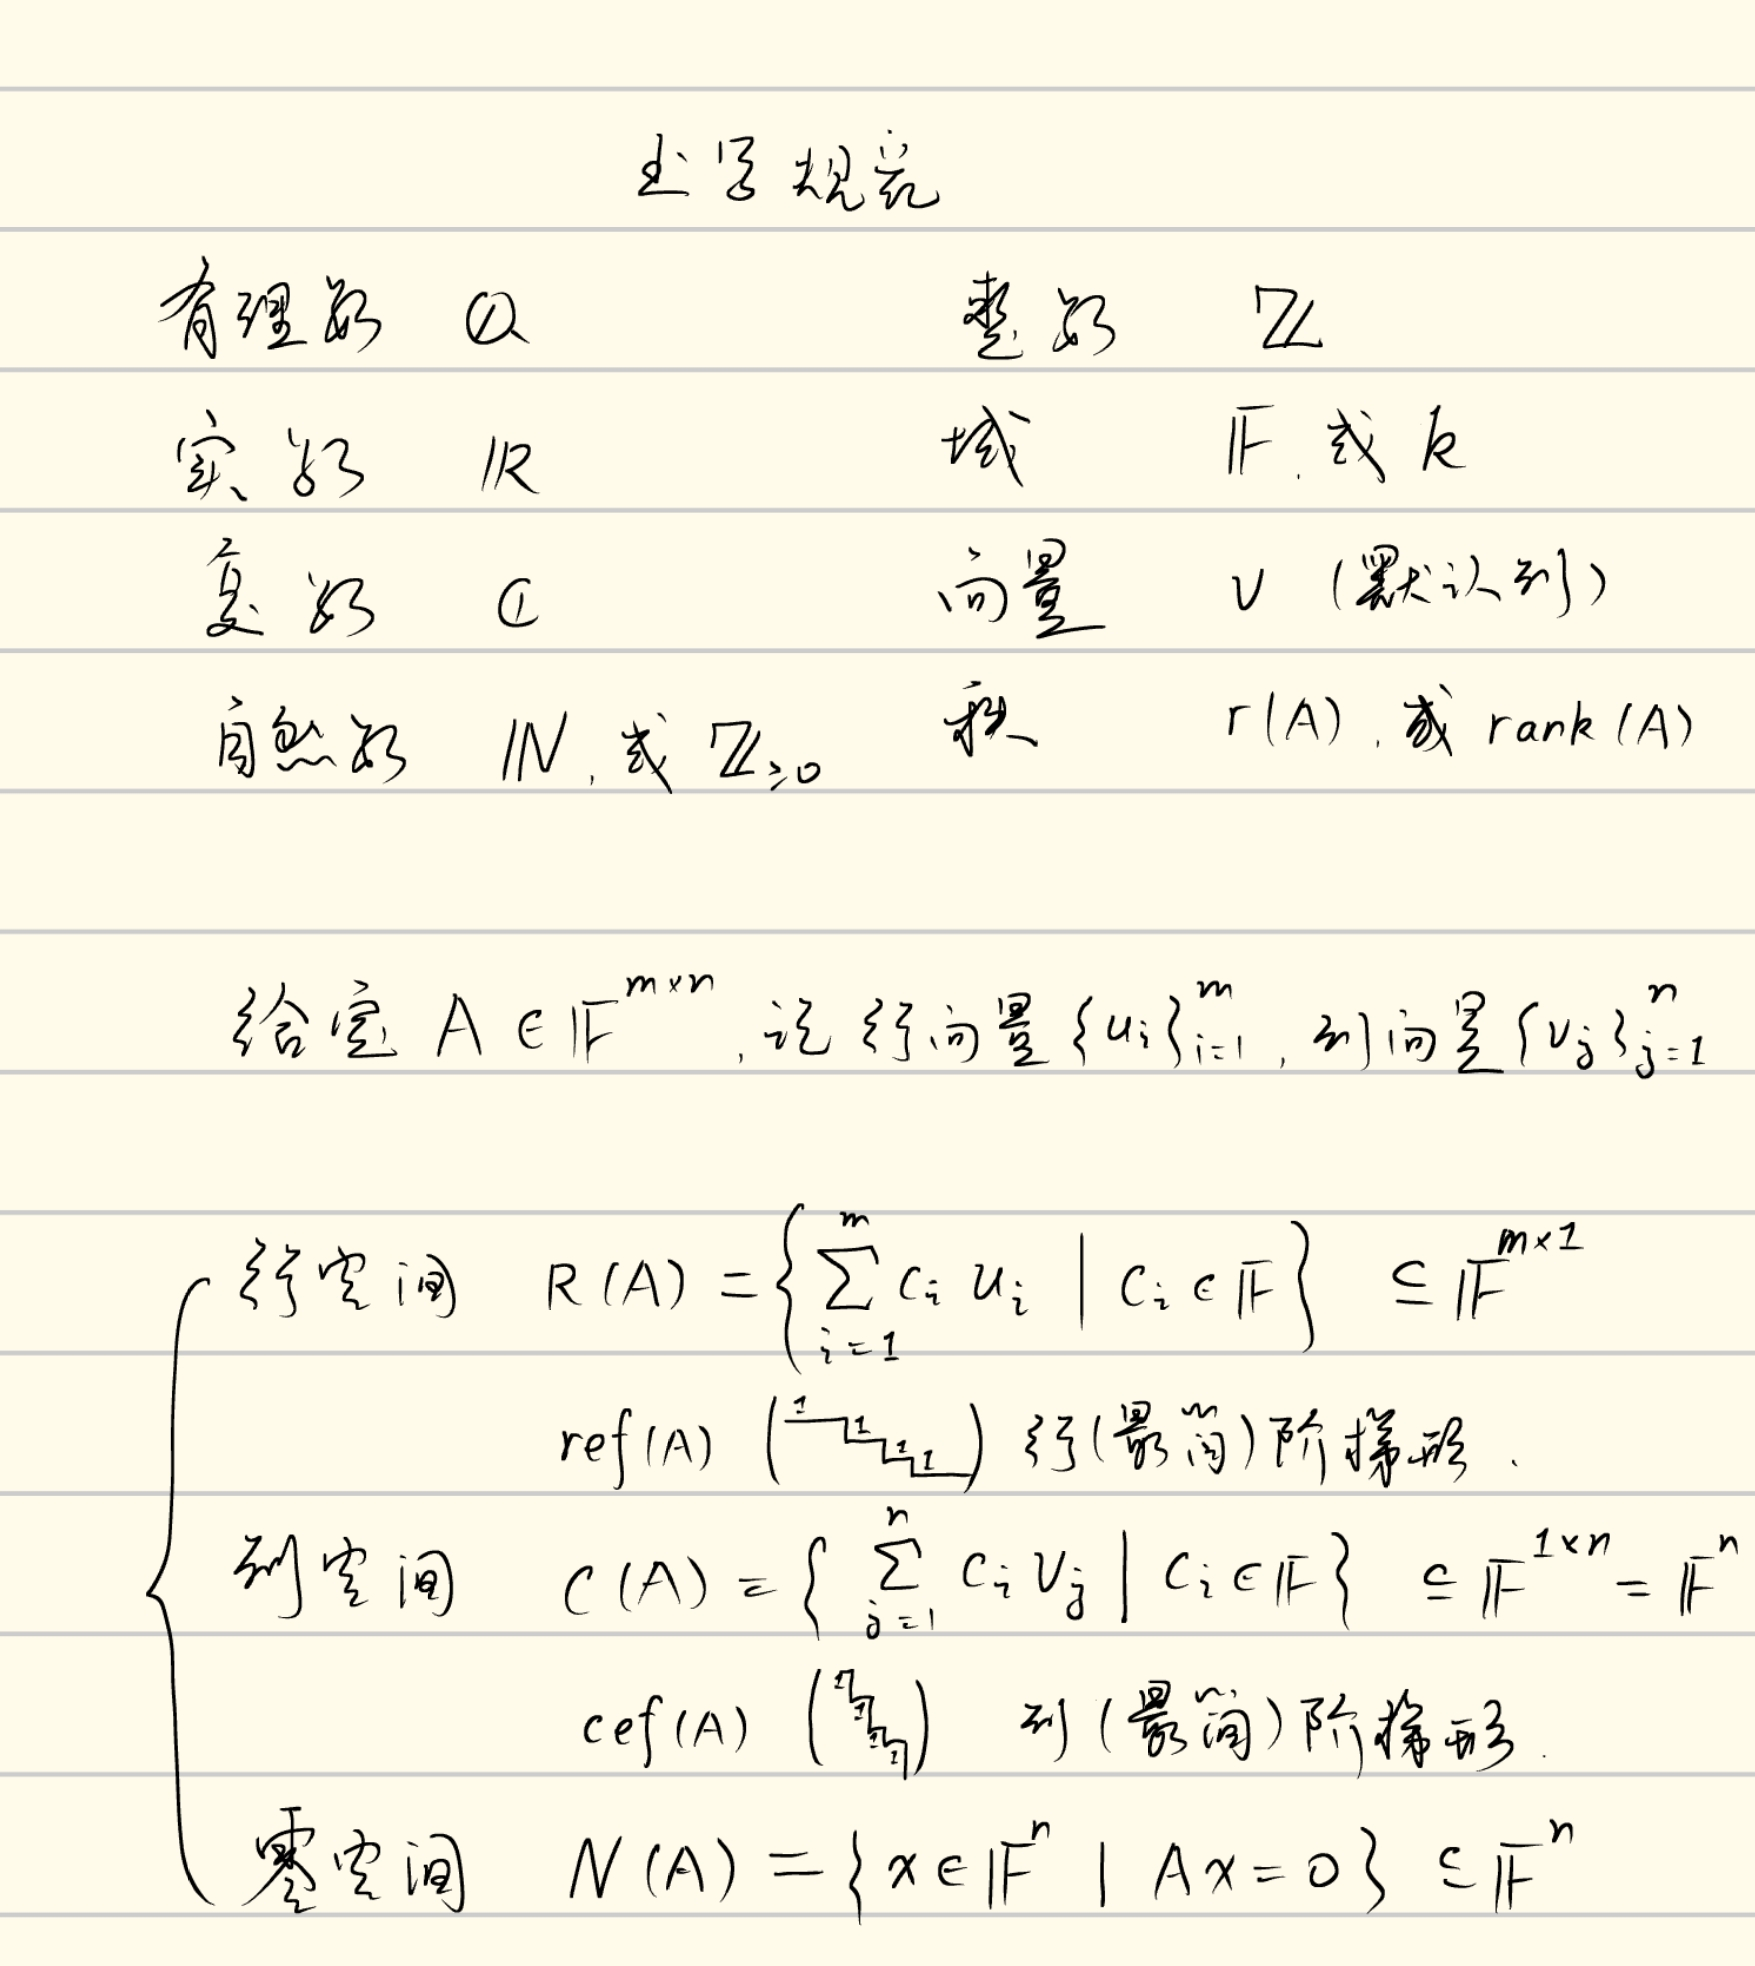 书写规范
有理数 ℚ 整数 ℤ
实数 ℝ 域 𝔽, 或 k
复数 ℂ 向量 v (默认列)
自然数 ℕ, 或 ℤ≥0 秩 r(A), 或 rank(A)
给定 A ∈ 𝔽^{m×n}, 记行向量 {u_i}_{i=1}^m, 列向量 {v_j}_{j=1}^n
行空间 R(A) = { ∑_{i=1}^m c_i u_i | c_i ∈ 𝔽 } ⊆ 𝔽^{m×1}
ref(A) ( 1 1 1 1 ) 行(最简)阶梯形.
列空间 C(A) = { ∑_{j=1}^n c_i v_j | c_i ∈ 𝔽 } ⊆ 𝔽^{1×n} = 𝔽^n
cef(A) ( 1 1 1 1 ) 列(最简)阶梯形.
零空间 N(A) = { x ∈ 𝔽^n | Ax = 0 } ⊆ 𝔽^n